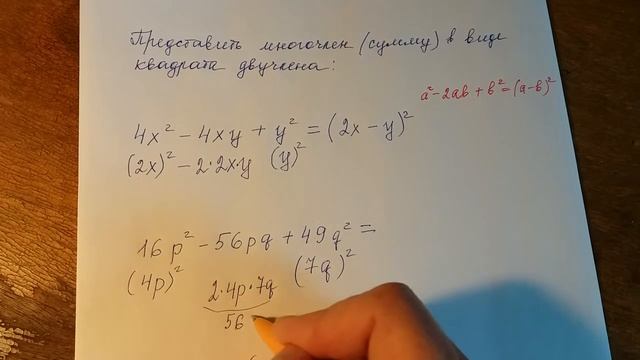 Представить многочлен (сумму) в виде
квадрата двучлена:
a² - 2ab + b² = (a-b)²
4x² - 4xy + y² = (2x - y)²
(2x)² - 2·2x·y (y)²
16p² - 56pq + 49q² =
(4p)² 2·4p·7q (7q)²
56